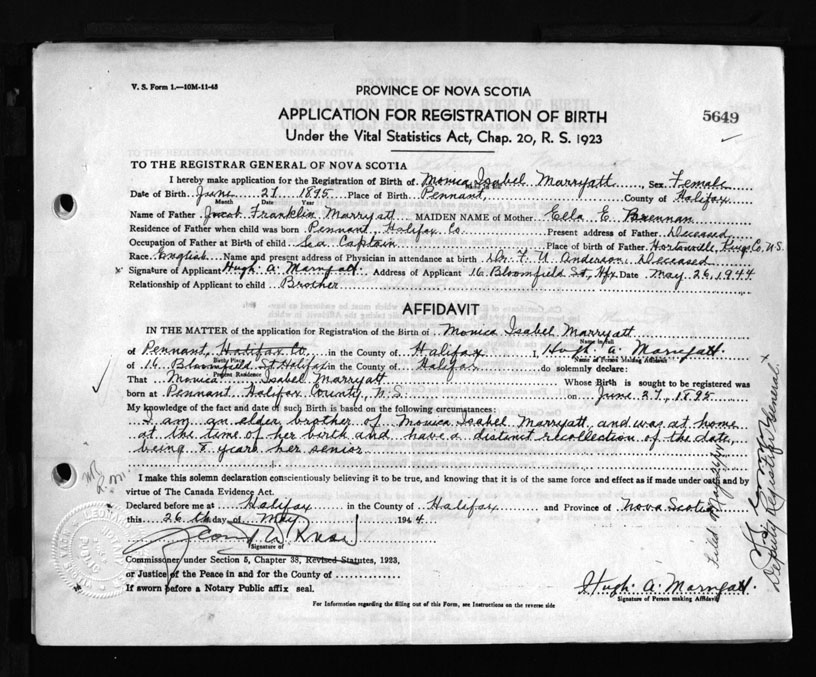 V. S. Form 1.—10M-11-43
PROVINCE OF NOVA SCOTIA
APPLICATION FOR REGISTRATION OF BIRTH
5649
Under the Vital Statistics Act, Chap. 20, R. S. 1923
TO THE REGISTRAR GENERAL OF NOVA SCOTIA
I hereby make application for the Registration of Birth of Monica Isabel Marryatt, Sex Female
Date of Birth June 27 1895 Place of Birth Pennant, County of Halifax
Month Date Year
Name of Father Franklin Marryatt MAIDEN NAME of Mother Ella E. Brennan
Residence of Father when child was born Pennant, Halifax Co Present address of Father Deceased
Occupation of Father at Birth of child Sea Captain Place of birth of Father Hortonville, Kings Co. N.S.
Race English Name and present address of Physician in attendance at birth Dr. F. U. Anderson, Deceased
x Signature of Applicant Hugh A. Marryatt. Address of Applicant 16 Bloomfield St, Hfx Date May 26, 1944
Relationship of Applicant to child Brother
AFFIDAVIT
IN THE MATTER of the application for Registration of the Birth of Monica Isabel Marryatt
Name in full
of Pennant, Halifax Co. in the County of Halifax, I, Hugh A. Marryatt.
Birth Place Name of Person Making Affidavit
of 16 Bloomfield St Halifax in the County of Halifax do solemnly declare:
Present Residence
That Monica Isabel Marryatt Whose Birth is sought to be registered was
born at Pennant, Halifax County, N.S. on June 27, 1895
My knowledge of the fact and date of such Birth is based on the following circumstances:
I am an elder brother of Monica Isabel Marryatt, and was at home
at the time of her birth and have a distinct recollection of the date,
being 8 years her senior
I make this solemn declaration conscientiously believing it to be true, and knowing that it is of the same force and effect as if made under oath and by
virtue of The Canada Evidence Act.
Declared before me at Halifax in the County of Halifax and Province of Nova Scotia
this 26th day of May 1944
Signature of
Commissoner under Section 5, Chapter 38, Revised Statutes, 1923,
or Justice of the Peace in and for the County of
If sworn before a Notary Public affix seal.
Hugh A. Marryatt.
Signature of Person making Affidavit
For Information regarding the filling out of this Form, see Instructions on the reverse side
Filed May 26/44
Deputy Registrar General.